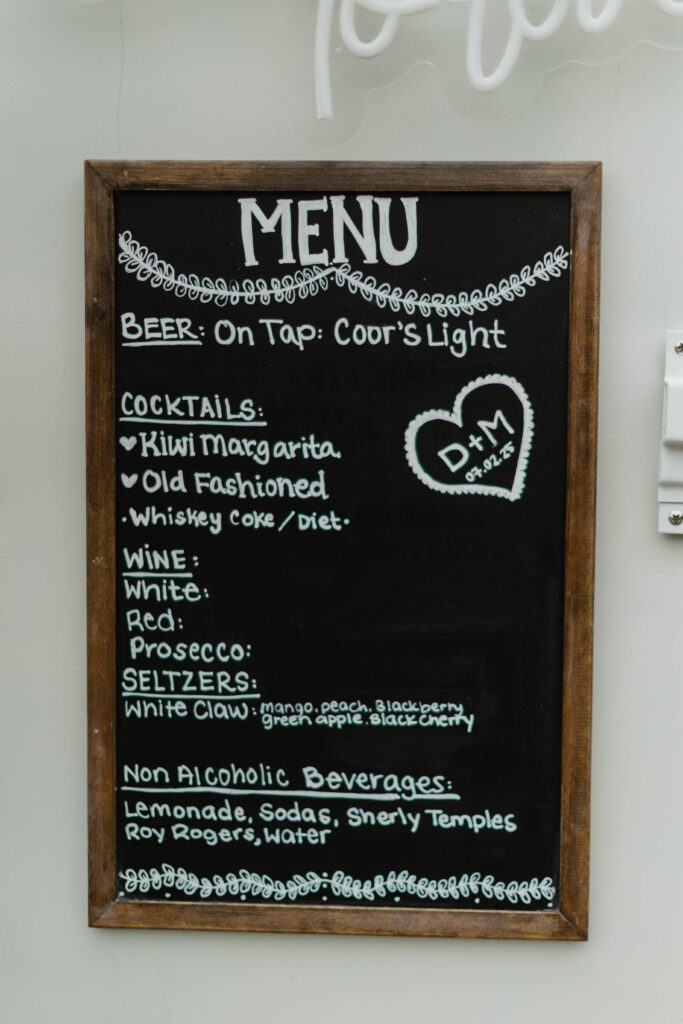 MENU
BEER: On Tap: Coor's Light
COCKTAILS:
Kiwi Margarita
Old Fashioned
·Whiskey Coke / Diet·
D+M
07.02.25
WINE:
White:
Red:
Prosecco:
SELTZERS:
White Claw: mango. peach. Blackberry
green apple. Black Cherry
Non Alcoholic Beverages:
Lemonade, Sodas, Sherly Temples
Roy Rogers, Water